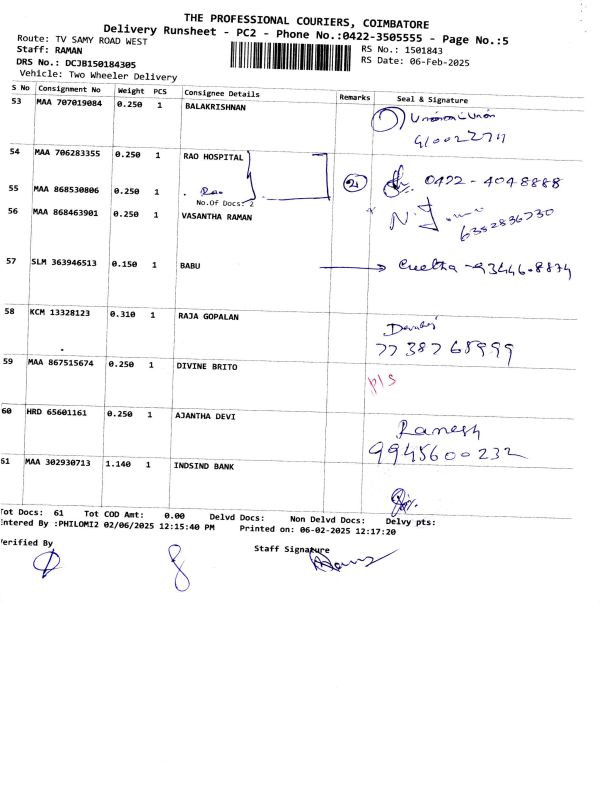 THE PROFESSIONAL COURIERS, COIMBATORE
Delivery Runsheet - PC2 - Phone No.:0422-3505555 - Page No.:5
Route: TV SAMY ROAD WEST
RS No.: 1501843
Staff: RAMAN
RS Date: 06-Feb-2025
DRS No.: DCJB150184305
Vehicle: Two Wheeler Delivery
S No Consignment No Weight PCS Consignee Details Remarks Seal & Signature
53 MAA 707019084 0.250 1 BALAKRISHNAN
54 MAA 706283355 0.250 1 RAO HOSPITAL
2 0422-4048888
55 MAA 868530806 0.250 1 . Rao
No.Of Docs: 2
56 MAA 868463901 0.250 1 VASANTHA RAMAN
6382836730
57 SLM 363946513 0.150 1 BABU
58 KCM 13328123 0.310 1 RAJA GOPALAN
7738768999
59 MAA 867515674 0.250 1 DIVINE BRITO
P/S
60 HRD 65601161 0.250 1 AJANTHA DEVI
Ramesh
9945600232
61 MAA 302930713 1.140 1 INDSIND BANK
Tot Docs: 61 Tot COD Amt: 0.00 Delvd Docs: Non Delvd Docs: Delvy pts:
Entered By :PHILOMI2 02/06/2025 12:15:40 PM Printed on: 06-02-2025 12:17:20
Verified By
Staff Signature